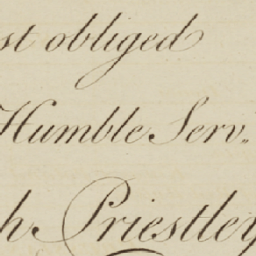 st obliged
Humble Serv.
h Priestley